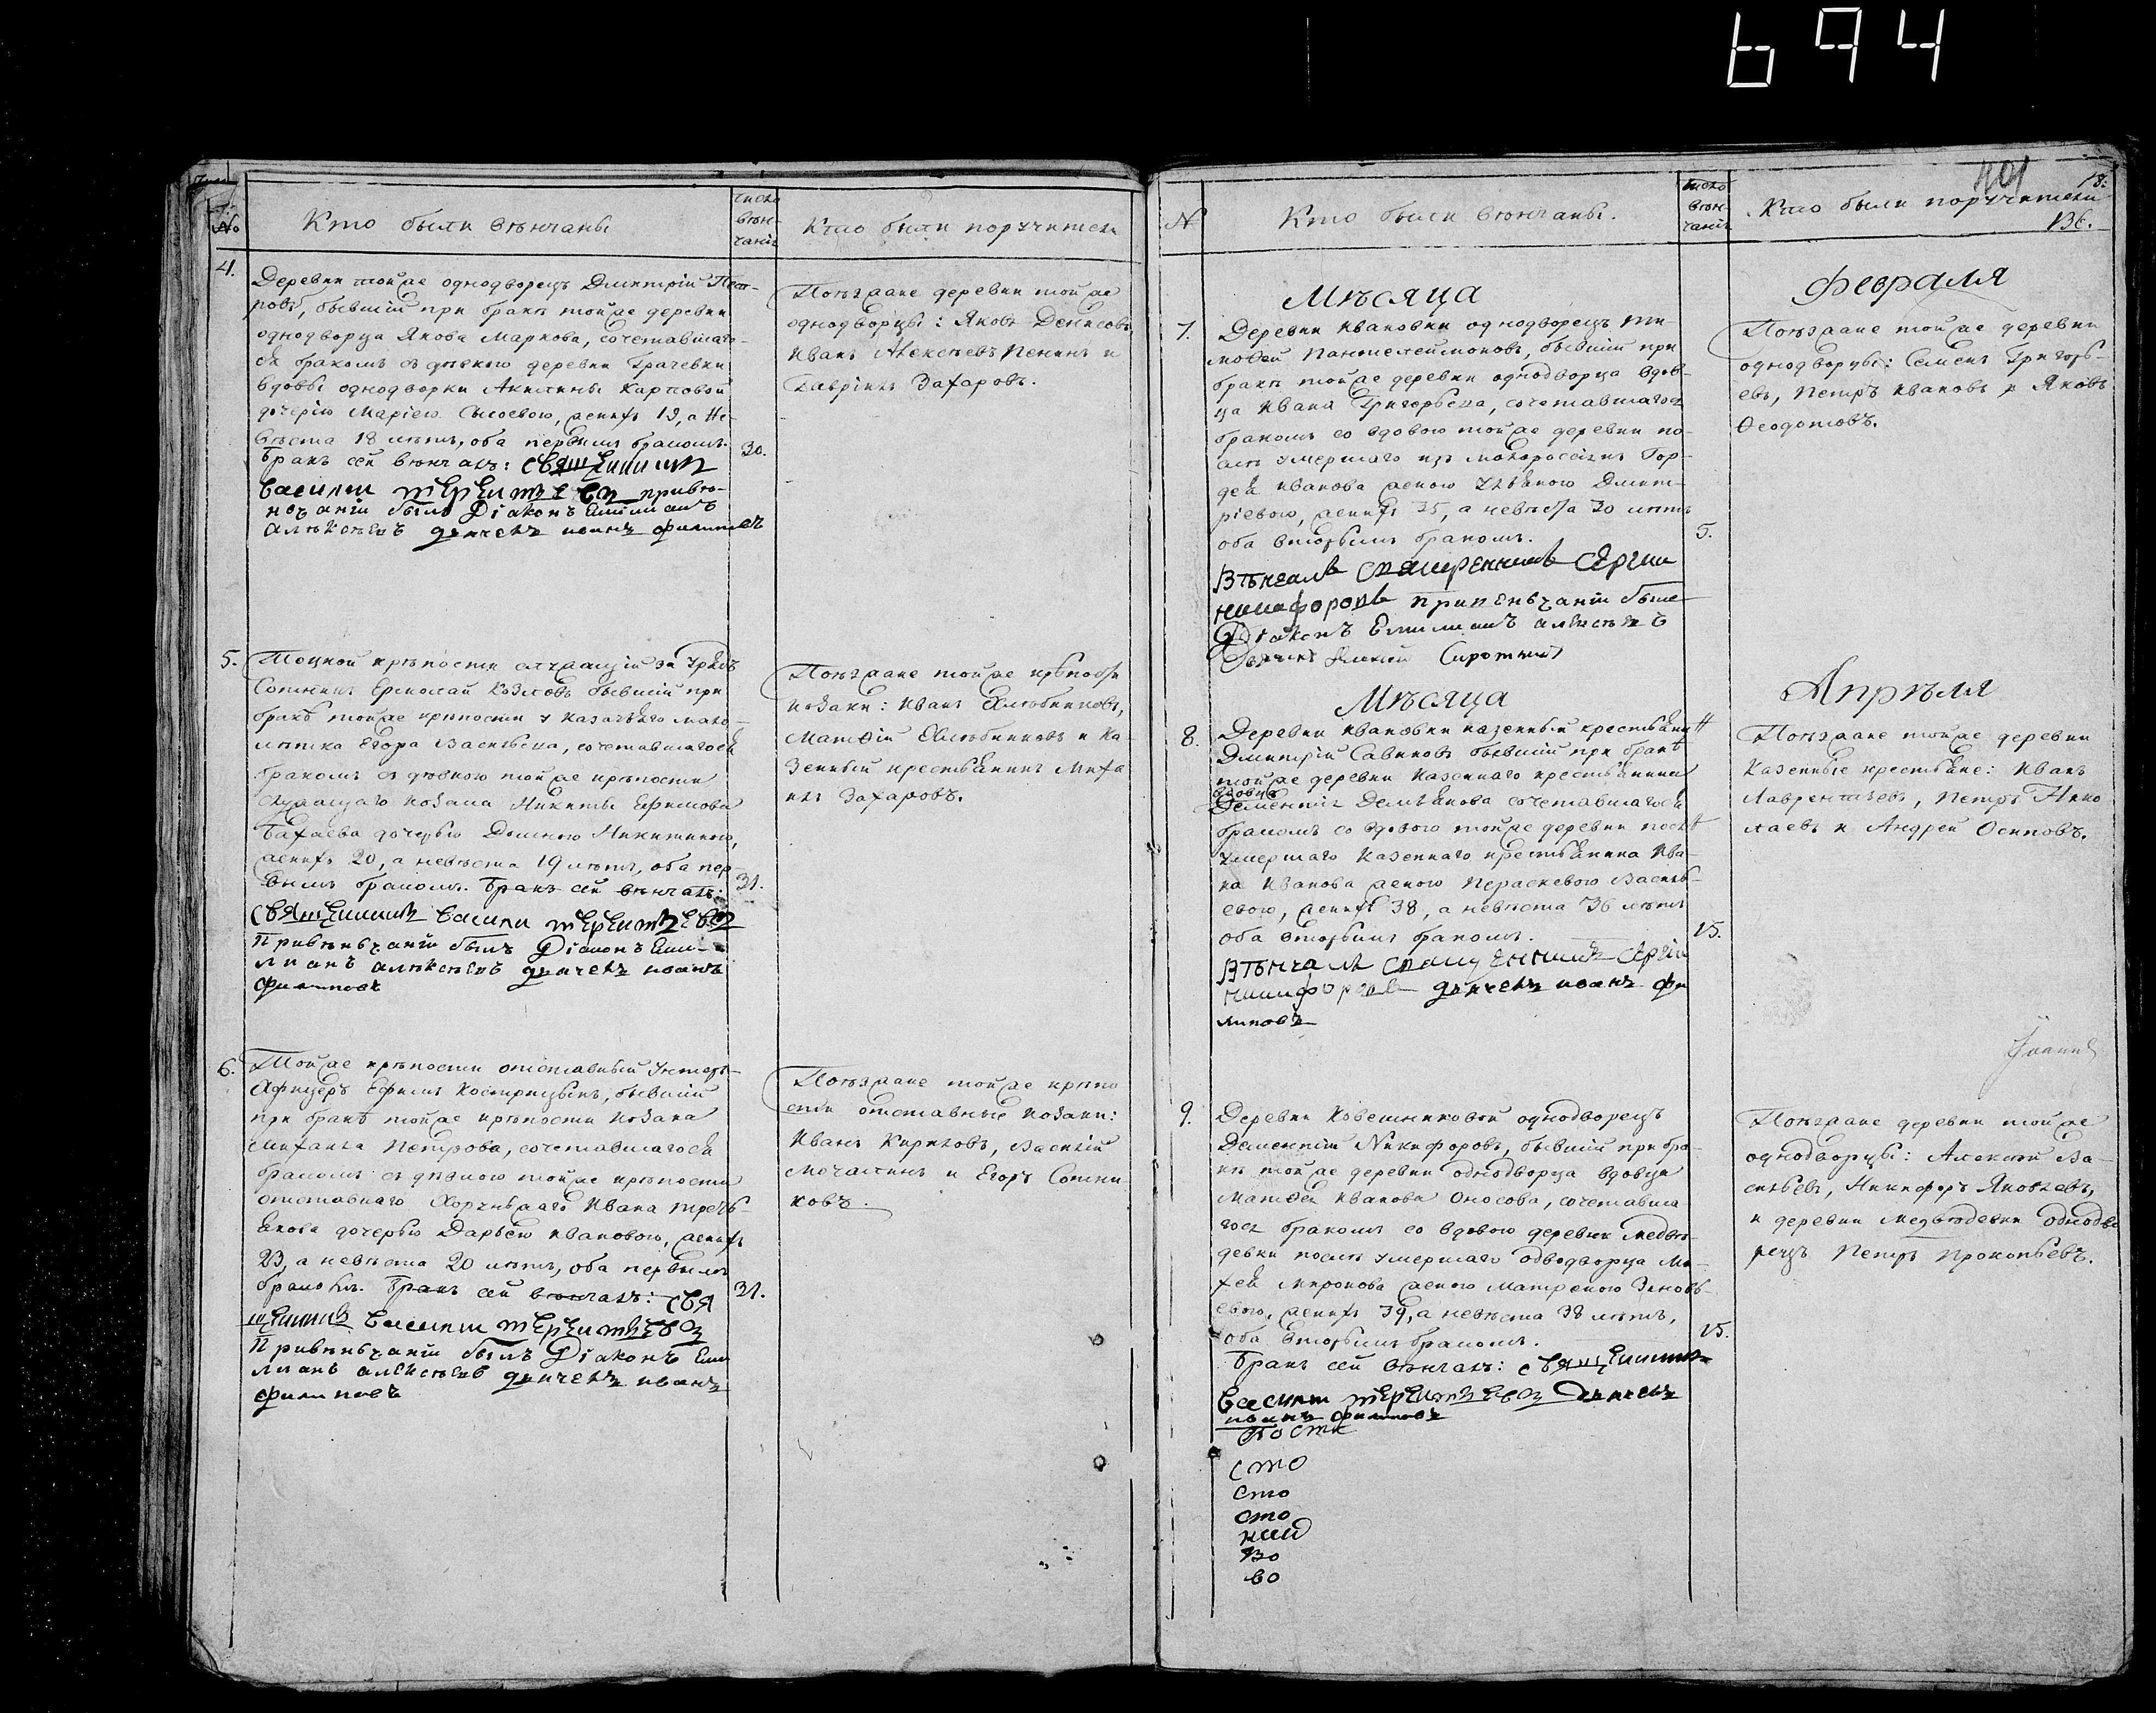 694
№
Кто были вѣнчаны
число
вѣн-
чанія
Кто были поручители
4.
Деревни тойже однодворецъ Дмитрій Пет-
ровъ, бывшій при бракѣ тойже деревни
однодворца Якова Маркова, сочетавшаго-
ся бракомъ съ дѣвкою деревни Грачевки
вдовы однодворки Акилины Карповой
дочерію Маріею Сысоевою, женихъ 19, а не-
вѣста 18 лѣтъ, оба первымъ бракомъ.
30.
Бракъ сей вѣнчалъ: священникъ
Василий
привѣ-
нчаніи былъ Діаконъ Емилианъ
Алѣксѣевъ дьячекъ иванъ филиповъ
Поѣзжане деревни тойже
однодворцы: Яковъ Денисовъ,
Иванъ Алексѣевъ Пенинъ и
Гаврілъ Захаровъ.
5.
Троцкой крѣпости служащій за урядъ
Сотникъ Ермолай Козловъ бывшій при
бракѣ тойже крѣпости у казачьяго мало-
лѣтка Егора Васильева, сочетавшагося
бракомъ съ дѣвкою тойже крѣпости
служащаго козака Никиты Ефимова
дочерью Домною Никитиною,
женихъ 20, а невѣста 19 лѣтъ, оба пер-
вымъ бракомъ. Бракъ сей вѣнчалъ:
31.
священникъ Василий
Привѣньчаніи былъ Діаконъ Еми-
лианъ алѣксѣевъ дьячекъ иванъ
филиповъ
Поѣзжане тойже крѣпости
козаки: Иванъ
Матѳій и ка-
зенный крестьянинъ Миха
илъ Захаровъ.
6.
Тойже крѣпости отставный унтеръ-
Афицеръ Ефимъ Кострицынъ, бывшій
при бракѣ тойже крѣпости козака
Михаила Петрова, сочетавшагося
бракомъ съ дѣвкою тойже крѣпости
отставнаго Хорунжаго Ивана Треть-
якова дочерью Дарьею Ивановою, женихъ
23, а невѣста 20 лѣтъ, оба первымъ
бракомъ. Бракъ сей вѣнчалъ: свя
31.
щенникъ Василий
Привѣньчаніи былъ Діаконъ Еми
лианъ алѣксѣевъ дьячекъ иванъ
филиповъ
Поѣзжане тойже крѣпо
сти отставные козаки:
Иванъ Кириловъ, Василій
Мочалинъ и Егоръ Сотни
ковъ.
401
18.
136.
N
Кто были вѣнчаны.
число
вѣн-
чанія
Кто были поручители
Мѣсяца
Февраля
7.
Деревни Ивановки однодворецъ Ти-
моѳей Пантелеймоновъ, бывшій при
бракѣ тойже деревни однодворца вдов-
ца Ивана Григорьева, сочетавшагося
бракомъ со вдовою тойже деревни по-
слѣ умершаго изъ малороссіянъ Гор-
дея Иванова женою Дмит-
ріевою, женихъ 35, а невѣста 30 лѣтъ
оба вторымъ бракомъ.
5.
Вѣнчалъ священникъ Сергии
никифоровъ привѣньчаніи были
Діаконъ Емилианъ алѣксѣевъ
Дьячекъ Сиротинъ
Поѣзжане тойже деревни
однодворцы: Семенъ Григорь-
евъ, Петръ Ивановъ и Яковъ
Ѳеодотовъ.
Мѣсяца
Апрѣля
8.
Деревни Ивановки казенный крестьянин
Дмитрій Савиновъ бывшій при бракѣ
тойже деревни казеннаго крестьянина
вдовца
Дементія Демьянова сочетавшагося
бракомъ со вдовою тойже деревни послѣ
умершаго казеннаго крестьянина Ива-
на Иванова женою Параскевою Василь-
евою, женихъ 38, а невѣста 36 лѣтъ
оба вторымъ бракомъ.
15.
Вѣнчалъ священникъ Сергіи
никифоровъ дьячекъ иванъ фи
липовъ
Поѣзжане тойже деревни
казенные крестьяне: Иванъ
Лаврентьевъ, Петръ Нико
лаевъ и Андрей Осиповъ.
9.
Деревни однодворецъ
Дементій Никифоровъ, бывшій при бра-
кѣ тойже деревни однодворца вдовца
Матѳея Иванова Оносова, сочетавша
гося бракомъ со вдовою деревни Медвѣ-
девки послѣ умершаго одводворца Ми-
хея Миронова женою Матреною Зиновь-
евою, женихъ 39, а невѣста 38 лѣтъ,
оба вторымъ бракомъ.
15.
Бракъ сей вѣнчалъ: священникъ
Василии дьячекъ
иванъ филиповъ
сто
сто
сто
во
во
Поѣзжане деревни тойже
однодворцы: Алексѣй Ва-
сильевъ, Никифоръ Яковлевъ,
и деревни Медвѣдевки однодво
рецъ Петръ Прокопьевъ.